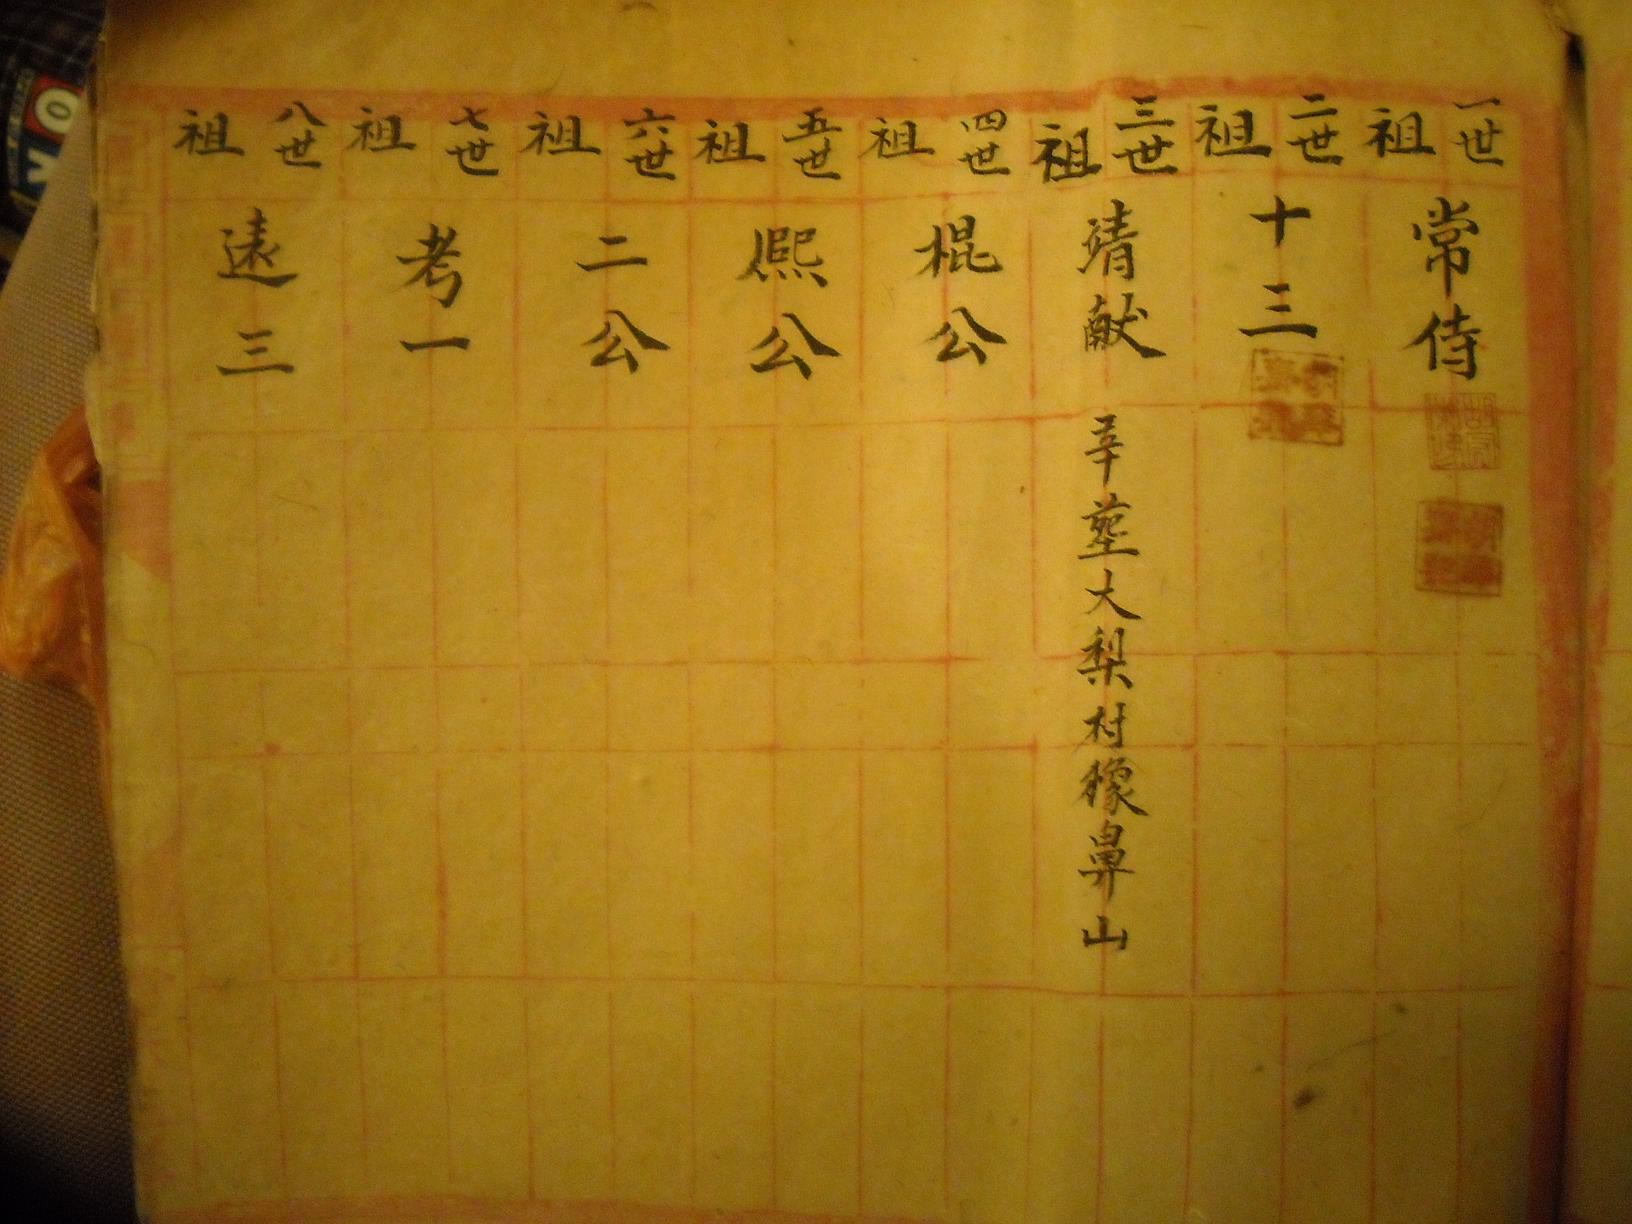 一世祖 常侍
二世祖 十三
三世祖 靖献 辛塟大梨村橡鼻山
四世祖 棍公
五世祖 熈公
六世祖 二公
七世祖 考一
八世祖 遠三